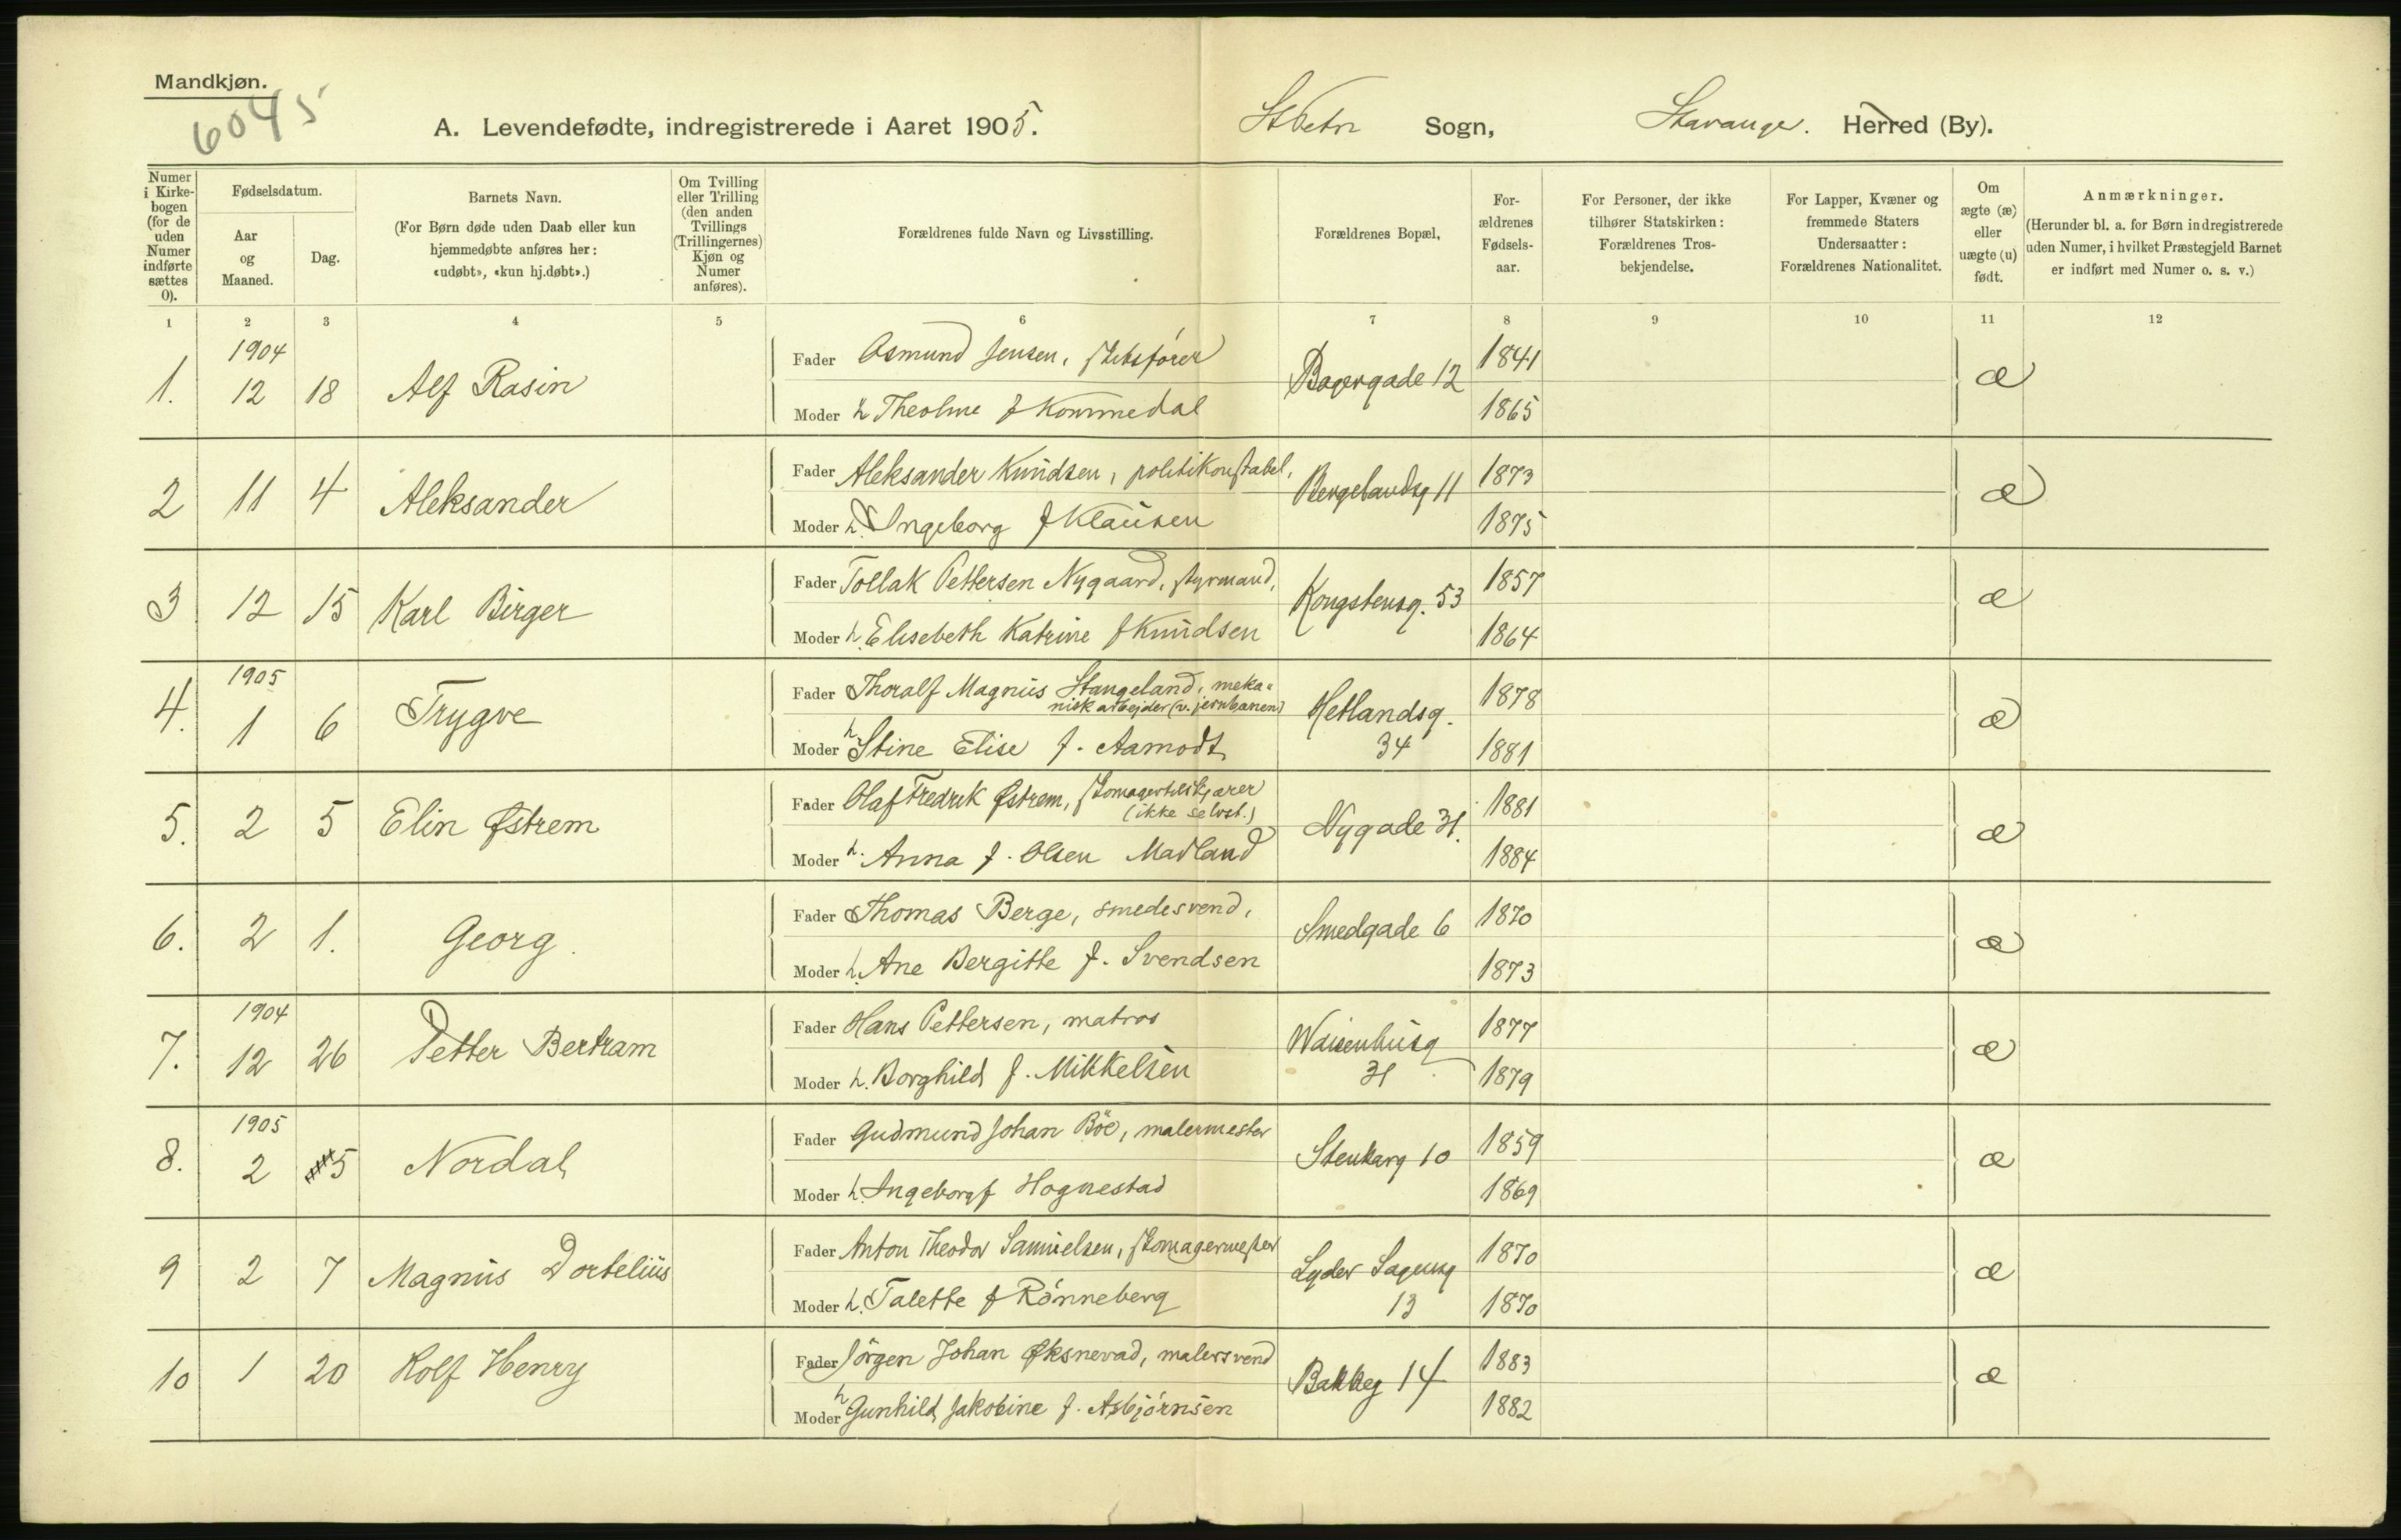 Mandkjøn.
6045
A. Levendefødte, indregistrerede i Aaret 1905. St Petri Sogn, Stavanger. Herred (By).
Numer i Kirkebogen (for de uden Numer indførte sættes 0).
Fødselsdatum.
Aar og Maaned.
Dag.
Barnets Navn.
(For Børn døde uden Daab eller kun hjemmedøbte anføres her: «udøbt», «kun hj.døbt».)
Om Tvilling eller Trilling (den anden Tvillings (Trillingernes) Kjøn og Numer anføres).
Forældrenes fulde Navn og Livsstilling.
Forældrenes Bopæl,
Forældrenes Fødselsaar.
For Personer, der ikke tilhører Statskirken: Forældrenes Trosbekjendelse.
For Lapper, Kvæner og fremmede Staters Undersaatter: Forældrenes Nationalitet.
Om ægte (æ) eller uægte (u) født.
Anmærkninger.
(Herunder bl. a. for Børn indregistrerede uden Numer, i hvilket Præstegjeld Barnet er indført med Numer o. s. v.)
1 2 3 4 5 6 7 8 9 10 11 12
1904
1. 12 18 Alf Rasin
Fader Osmund Jensen, skibsfører
Moder h Theoline f Kommedal
Bagergade 12 1841 1865 æ
2 11 4 Aleksander
Fader Aleksander Knudsen, politikonstabel,
Moder h. Ingeborg f Klausen
Bergelandsg 11 1873 1875 æ
3 12 15 Karl Birger
Fader Tollak Pettersen Nygaard, styrmand,
Moder h. Elisebeth Katrine f Knudsen
Kongstensg. 53 1857 1864 æ
1905
4. 1 6 Trygve
Fader Thoralf Magnus Stangeland, meka-
nisk arbejder (v. jernbanen)
Moder h. Stine Elise f. Aamodt
Hetlandsg. 34 1878 1881 æ
5. 2 5 Elin Østrem
Fader Olaf Fredrik Østrem, skomagertilskjærer
(ikke selvst.)
Moder h. Anna f. Olsen Madland
Nygade 31. 1881 1884 æ
6. 2 1. Georg.
Fader Thomas Berge, smedesvend,
Moder h. Ane Bergitte f. Svendsen
Smedgade 6 1870 1873 æ
1904
7. 12 26 Petter Bertram
Fader Hans Pettersen, matros
Moder h. Borghild f. Mikkelsen
Waisenhusg 31 1877 1879 æ
1905
8. 2 5 Nordal
Fader Gudmund Johan Böe, malermester
Moder h. Ingeborg f Hognestad
Stenkarg 10 1859 1869 æ
9 2 7 Magnus Dortelius
Fader Anton Theodor Samuelsen, skomagermester
Moder h. Talette f Rönneberg
Lyder Sagensg 13 1870 1870 æ
10 1 20 Rolf Henry
Fader Jörgen Johan Øksnevad, malersvend
Moder h Gunhild Jakobine f. Asbjörnsen
Bakkeg 14 1883 1882 æ